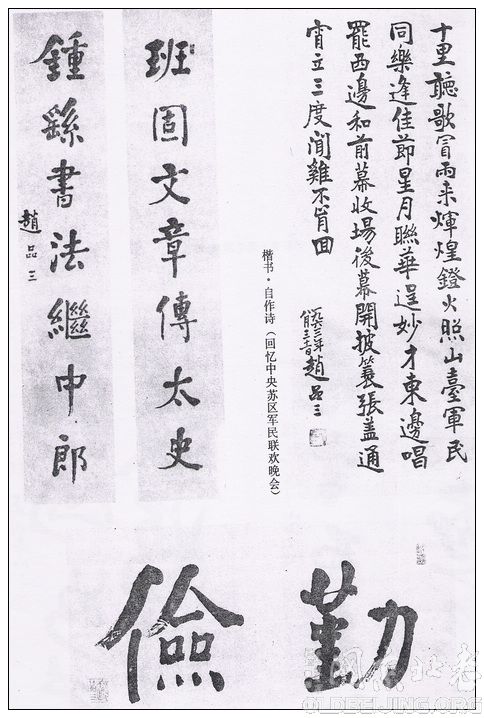 十里聽歌冒雨来輝煌鐙火照山臺軍民
同樂逢佳節星月聯華逞妙才東邊唱
罷西邊和前幕收場後幕開披蓑張盖通
宵立三度闻雞不肯回
趙品三
楷书·自作诗（回忆中央苏区军民联欢晚会）
班固文章傳太史
鍾繇書法繼中郎
趙品三
勤儉
OLDBEIJING.ORG